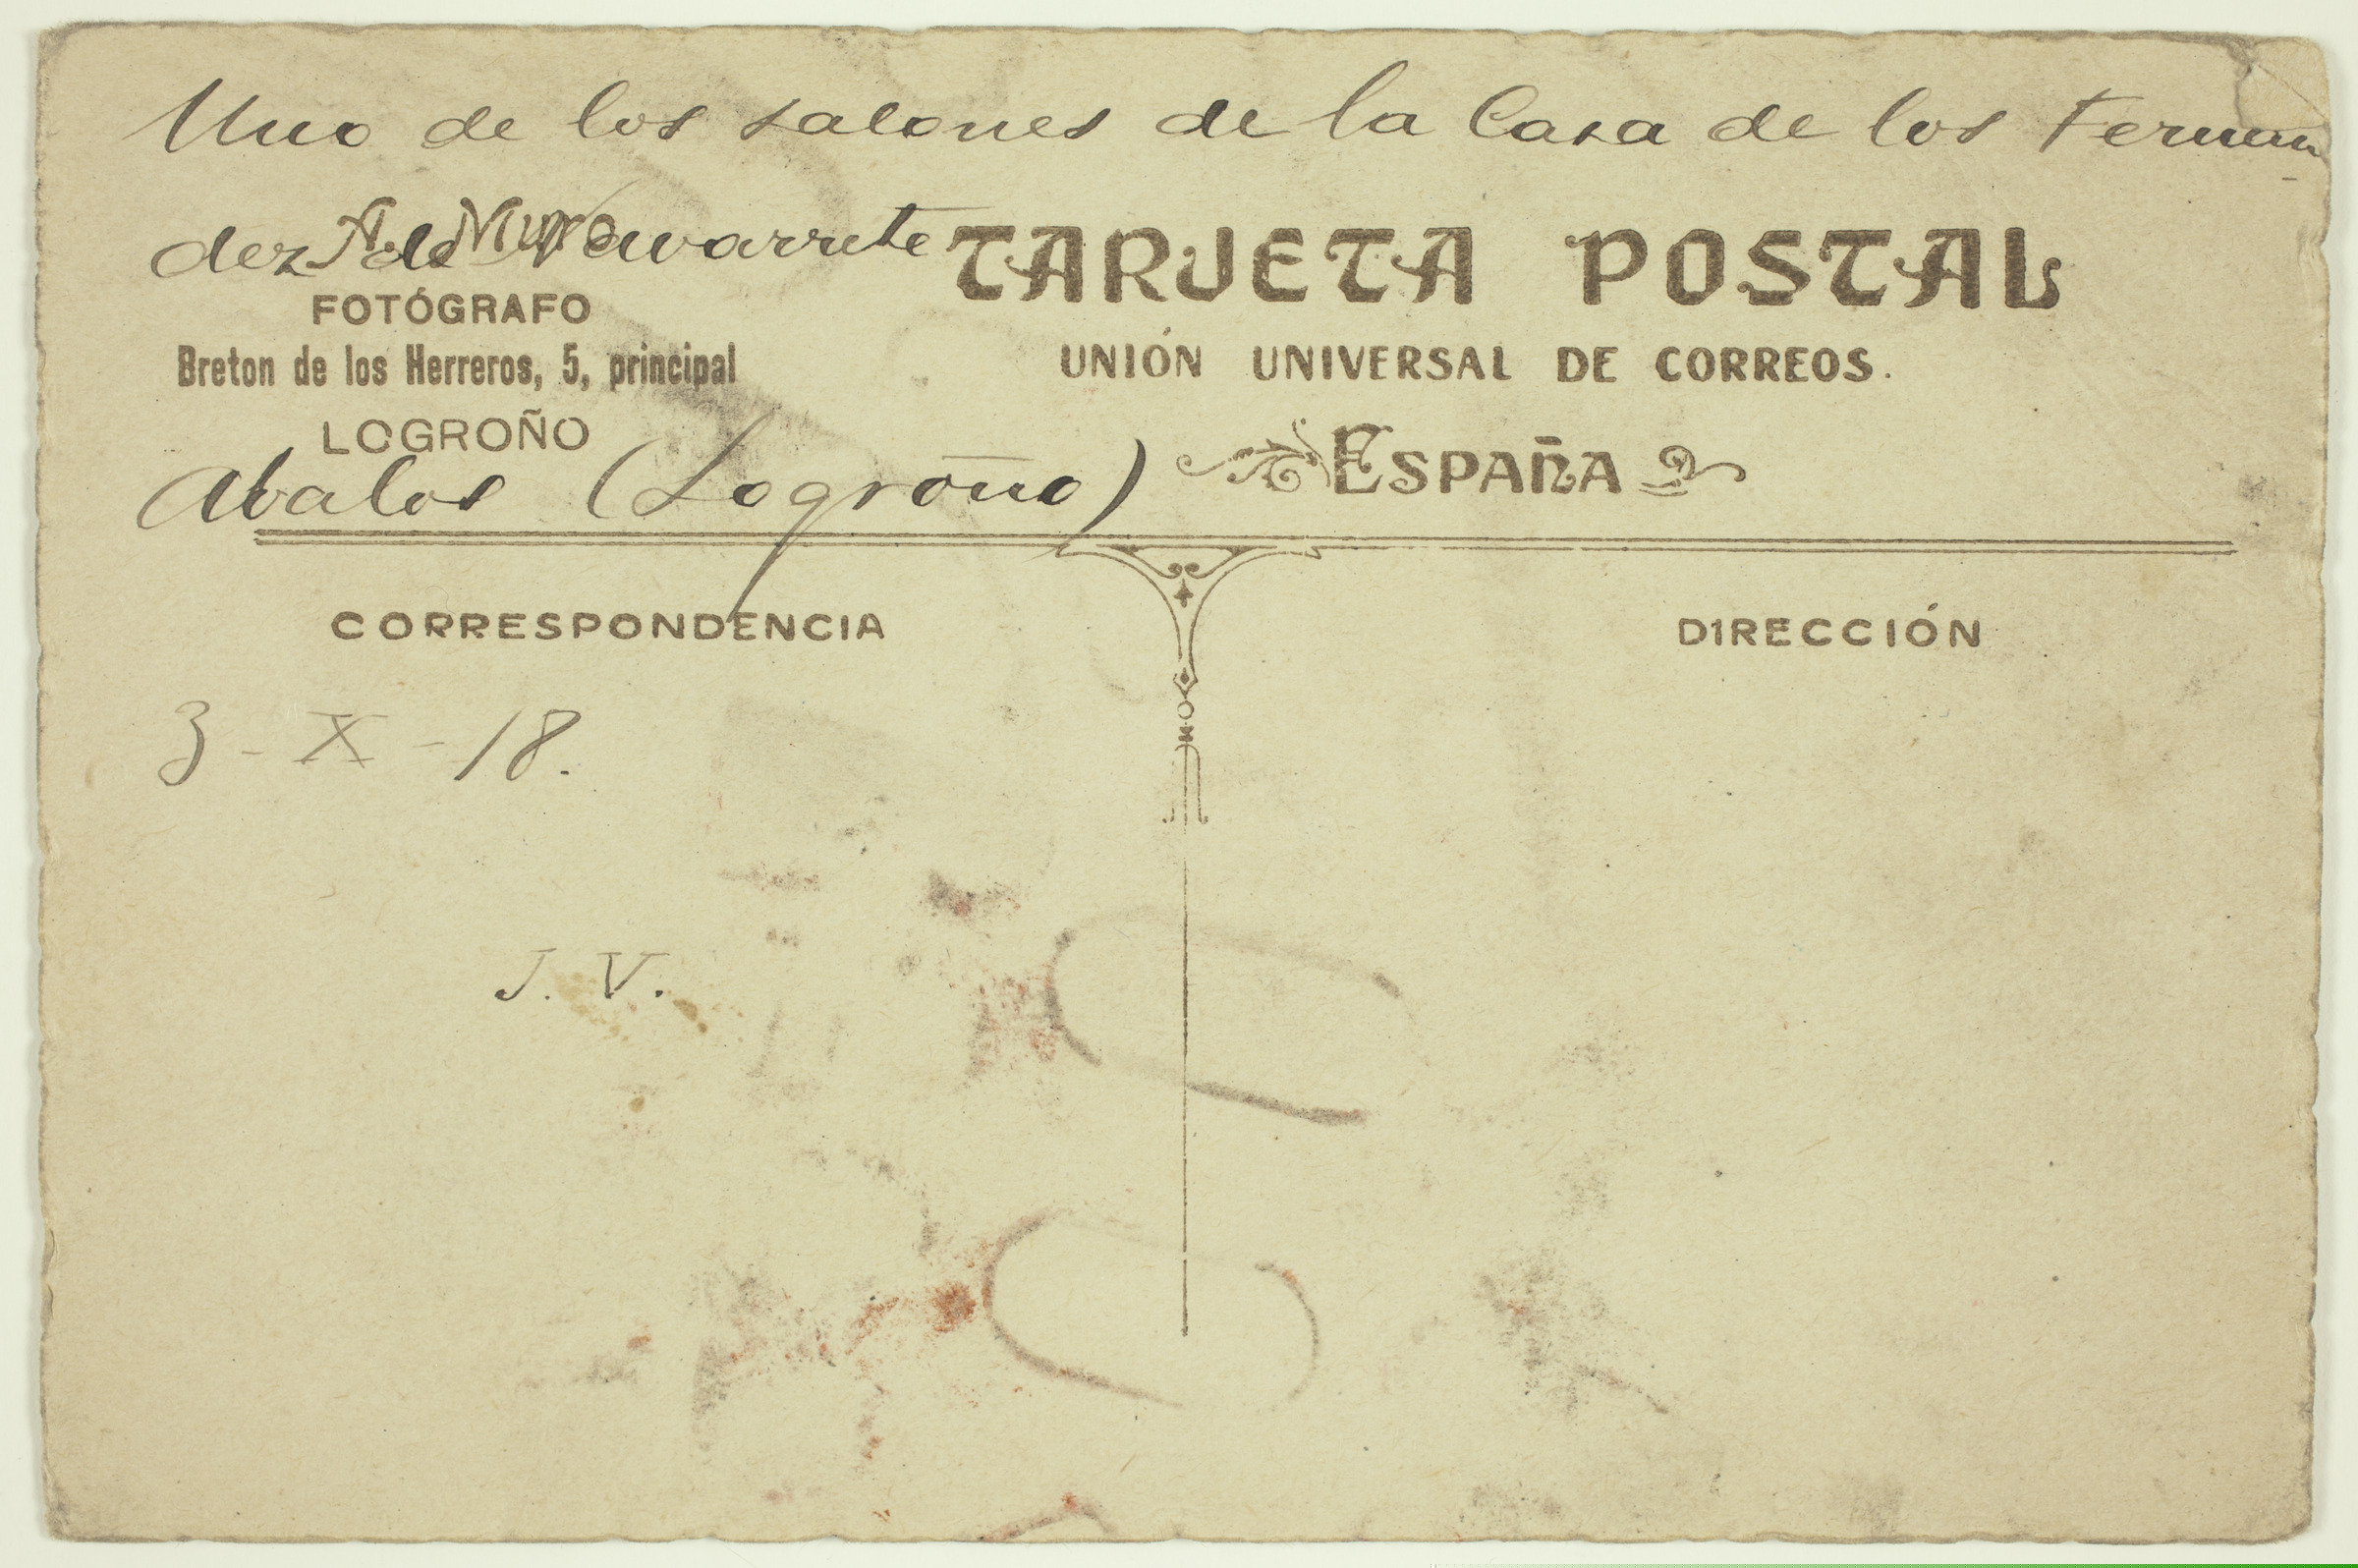 Uno de los salones de la Casa de los Fernan-
dez de Navarrete
A. Muro
FOTÓGRAFO
Breton de los Herreros, 5, principal
LOGROÑO
TARJETA POSTAL
UNIÓN UNIVERSAL DE CORREOS.
ESPAÑA
Abalos (Logroño)
CORRESPONDENCIA
DIRECCIÓN
3 - X - 18.
J. V.